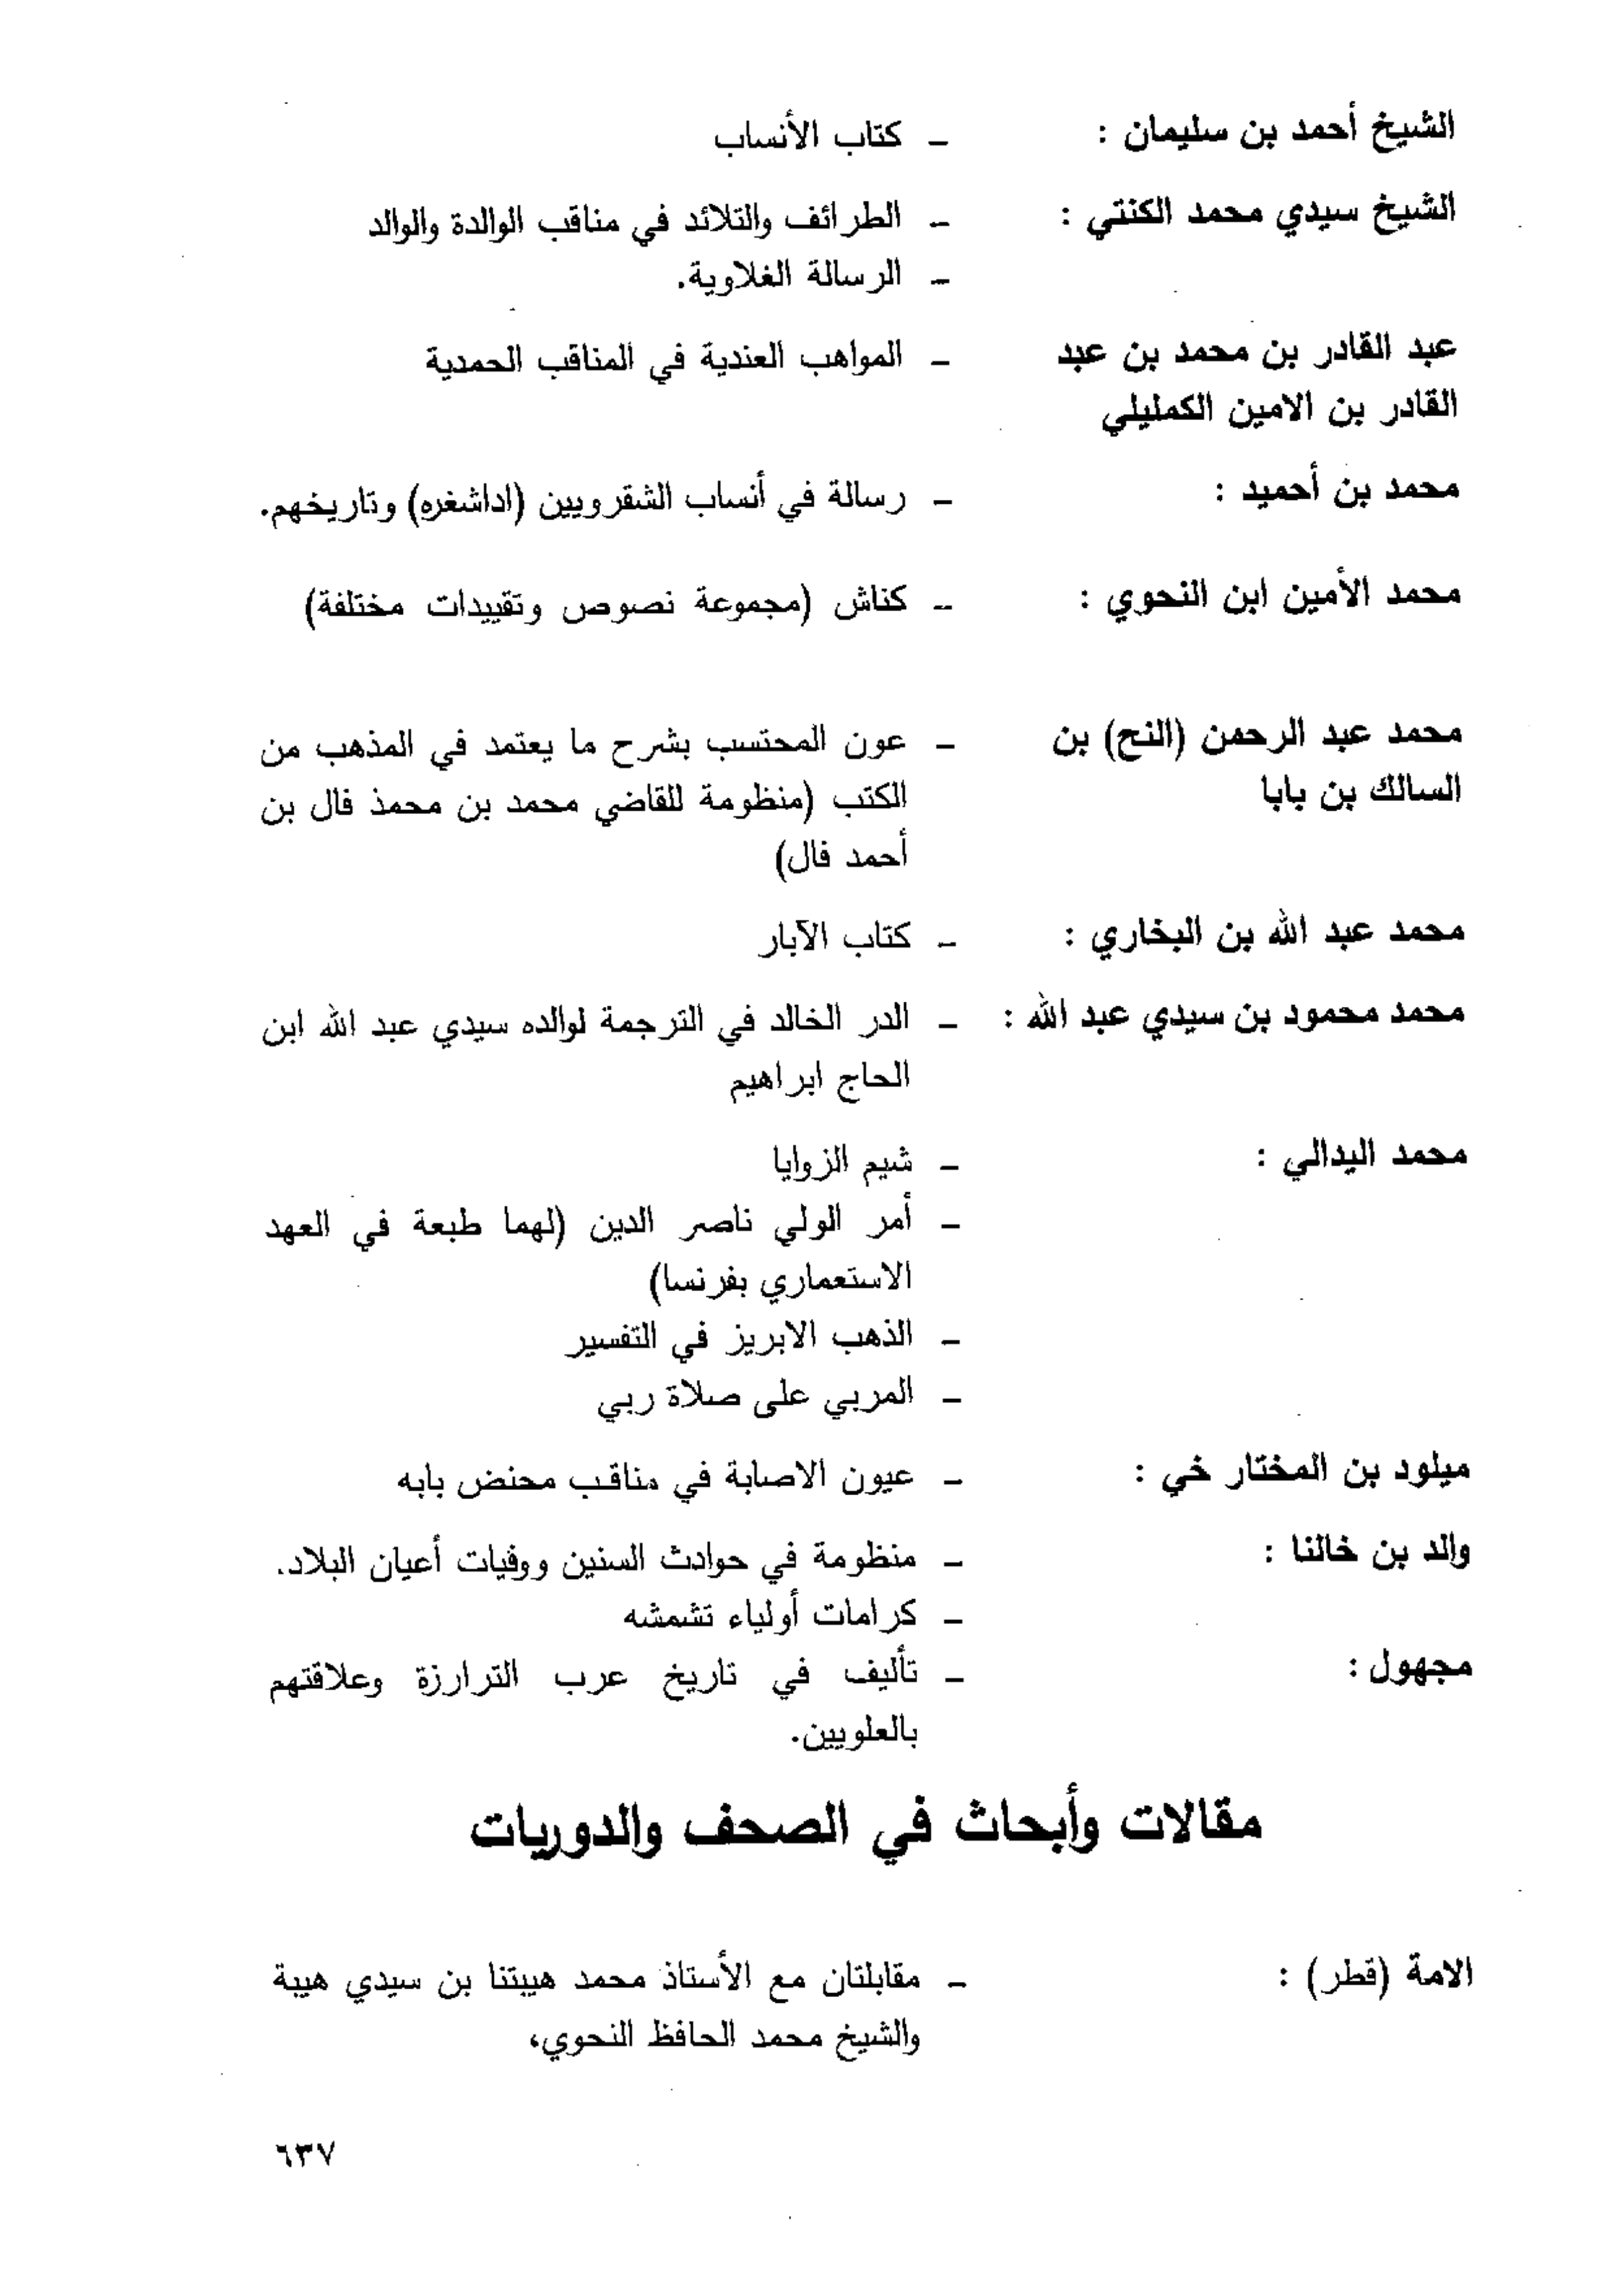 الشيخ أحمد بن سليمان : – كتاب الأنساب
الشيخ سيدي محمد الكنتي : – الطرائف والتلائد في مناقب الوالدة والوالد
– الرسالة الغلاوية.
عبد القادر بن محمد بن عبد – المواهب العندية في المناقب الحمدية
القادر بن الامين الكمليلي
محمد بن أحميد : – رسالة في أنساب الشقرويين (اداشغره) وتاريخهم.
محمد الأمين ابن النحوي : – كناش (مجموعة نصوص وتقييدات مختلفة)
محمد عبد الرحمن (النح) بن – عون المحتسب بشرح ما يعتمد في المذهب من
السالك بن بابا الكتب (منظومة للقاضي محمد بن محمذ فال بن
أحمد فال)
محمد عبد الله بن البخاري : – كتاب الآبار
محمد محمود بن سيدي عبد الله : – الدر الخالد في الترجمة لوالده سيدي عبد الله ابن
الحاج ابراهيم
محمد اليدالي : – شيم الزوايا
– أمر الولي ناصر الدين (لهما طبعة في العهد
الاستعماري بفرنسا)
– الذهب الابريز في التفسير
– المربي على صلاة ربي
ميلود بن المختار خي : – عيون الاصابة في مناقب محنض بابه
والد بن خالنا : – منظومة في حوادث السنين ووفيات أعيان البلاد.
– كرامات أولياء تشمشه
مجهول : – تأليف في تاريخ عرب الترارزة وعلاقتهم
بالعلويين.
مقالات وأبحاث في الصحف والدوريات
الامة (قطر) : – مقابلتان مع الأستاذ محمد هيبتنا بن سيدي هيبة
والشيخ محمد الحافظ النحوي،
٦٣٧